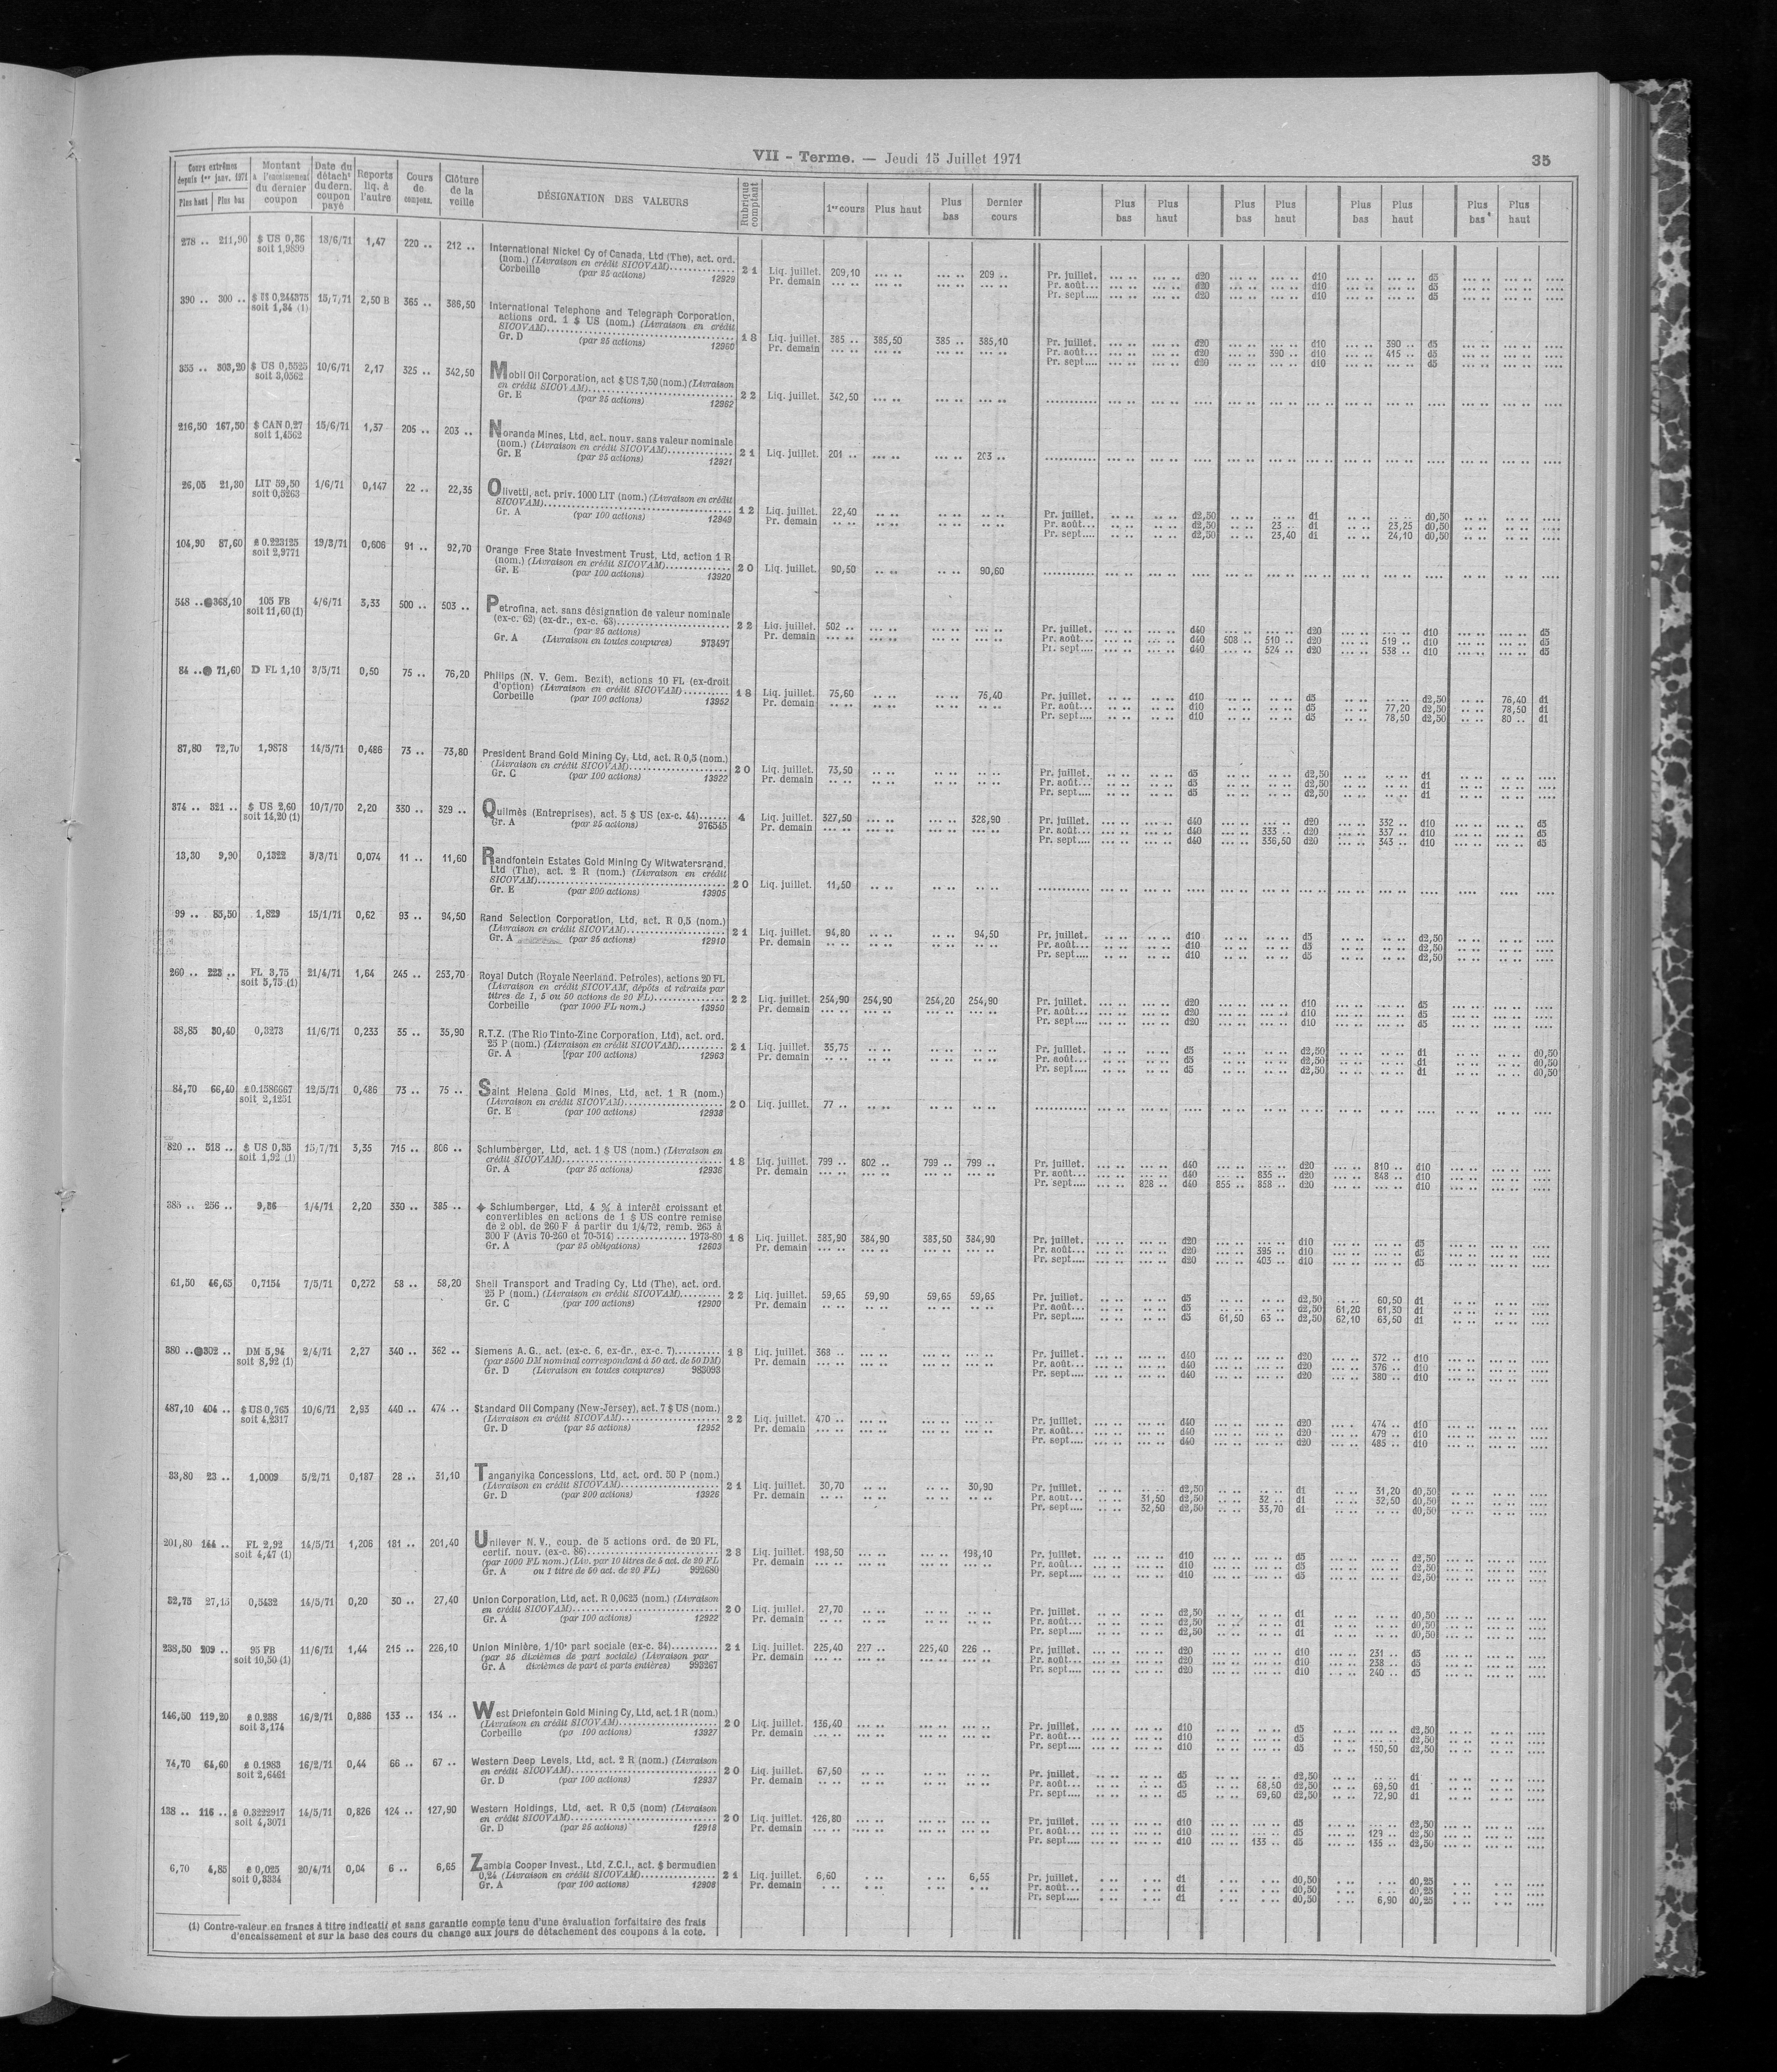 VII - Terme. — Jeudi 15 Juillet 1971
35
Cours extrêmes depuis 1er janv. 1971 Plus haut Plus bas
Montant à l'encaissement du dernier coupon
Date du détacht du dern. coupon payé
Reports liq. à l'autre
Cours de compens.
Clôture de la veille
DÉSIGNATION DES VALEURS
Rubrique comptant
1er cours Plus haut Plus bas Dernier cours
Plus bas Plus haut Plus bas Plus haut Plus bas Plus haut Plus bas Plus haut
278 .. 211,90 $ US 0,36 18/6/71 1,47 220 .. 212 ..
soit 1,9899
International Nickel Cy of Canada, Ltd (The), act. ord.
(nom.) (Livraison en crédit SICOVAM)
Corbeille (par 25 actions) 12929
21 Liq. juillet. 209,10 ... .. ... .. 209 ..
Pr. demain
Pr. juillet. d20 d10 d5
Pr. août... d20 d10 d5
Pr. sept.... d20 d10 d5
390 .. 300 .. 0,244375 15/7/71 2,50 B 365 .. 386,50
soit 1,34 (1)
International Telephone and Telegraph Corporation,
actions ord. 1 $ US (nom.) (Livraison en crédit
SICOVAM)
Gr. D (par 25 actions) 12960
18 Liq. juillet. 385 .. 385,50 385 .. 385,10
Pr. demain
Pr. juillet. d20 d10 390 .. d5
Pr. août... d20 390 .. d10 415 .. d5
Pr. sept.... d20 d10 d5
355 .. 303,20 $ US 0,5525 10/6/71 2,17 325 .. 342,50
soit 3,0562
Mobil Oil Corporation, act $ US 7,50 (nom.) (Livraison
en crédit SICOVAM)
Gr. E (par 25 actions) 12962
22 Liq. juillet. 342,50
216,50 167,50 $ CAN 0,27 15/6/71 1,37 205 .. 203 ..
soit 1,4562
Noranda Mines, Ltd, act. nouv. sans valeur nominale
(nom.) (Livraison en crédit SICOVAM)
Gr. E (par 25 actions) 12921
21 Liq. juillet. 201 .. 203 ..
26,05 21,30 LIT 59,50 1/6/71 0,147 22 .. 22,35
soit 0,5263
Olivetti, act. priv. 1000 LIT (nom.) (Livraison en crédit
SICOVAM)
Gr. A (par 100 actions) 12949
12 Liq. juillet. 22,40
Pr. demain
Pr. juillet. d2,50 d1 d0,50
Pr. août... d2,50 23 .. d1 23,25 d0,50
Pr. sept.... d2,50 23,40 d1 24,10 d0,50
104,90 87,60 0.223125 19/3/71 0,606 91 .. 92,70
soit 2,9771
Orange Free State Investment Trust, Ltd, action 1 R
(nom.) (Livraison en crédit SICOVAM)
Gr. E (par 100 actions) 13920
20 Liq. juillet. 90,50 90,60
548 .. 368,10 105 FB 4/6/71 3,33 500 .. 503 ..
soit 11,60 (1)
Petrofina, act. sans désignation de valeur nominale
(ex-c. 62) (ex-dr., ex-c. 63)
(par 25 actions)
Gr. A (Livraison en toutes coupures) 973497
22 Liq. juillet. 502 ..
Pr. demain
Pr. juillet. d40 d20 d10 d5
Pr. août... d40 508 .. 510 .. d20 519 .. d10 d5
Pr. sept.... d40 524 .. d20 538 .. d10 d5
84 .. 71,60 D FL 1,10 3/5/71 0,50 75 .. 76,20
Philips (N. V. Gem. Bezit), actions 10 FL (ex-droit
d'option) (Livraison en crédit SICOVAM)
Corbeille (par 100 actions) 13952
18 Liq. juillet. 75,60 75,40
Pr. demain
Pr. juillet. d10 d5 d2,50 76,40 d1
Pr. août... d10 d5 77,20 d2,50 78,50 d1
Pr. sept.... d10 d5 78,50 d2,50 80 .. d1
87,80 72,70 1,9878 14/5/71 0,486 73 .. 73,80
President Brand Gold Mining Cy, Ltd, act. R 0,5 (nom.)
(Livraison en crédit SICOVAM)
Gr. C (par 100 actions) 13922
20 Liq. juillet. 73,50
Pr. demain
Pr. juillet. d5 d2,50 d1
Pr. août... d5 d2,50 d1
Pr. sept.... d5 d2,50 d1
374 .. 321 .. $ US 2,60 10/7/70 2,20 330 .. 329 ..
soit 14,20 (1)
Quilmès (Entreprises), act. 5 $ US (ex-c. 44)
Gr. A (par 25 actions) 376545
4 Liq. juillet. 327,50 328,90
Pr. demain
Pr. juillet. d40 d20 332 .. d10 d5
Pr. août... d40 333 .. d20 337 .. d10 d5
Pr. sept.... d40 336,50 d20 343 .. d10 d5
13,30 9,90 0,1322 3/3/71 0,074 11 .. 11,60
Randfontein Estates Gold Mining Cy Witwatersrand,
Ltd (The), act. 2 R (nom.) (Livraison en crédit
SICOVAM)
Gr. E (par 200 actions) 13905
20 Liq. juillet. 11,50
99 .. 85,50 1,829 15/1/71 0,62 93 .. 94,50
Rand Selection Corporation, Ltd, act. R 0,5 (nom.)
(Livraison en crédit SICOVAM)
Gr. A (par 25 actions) 12910
21 Liq. juillet. 94,80 94,50
Pr. demain
Pr. juillet. d10 d5 d2,50
Pr. août... d10 d5 d2,50
Pr. sept.... d10 d5 d2,50
260 .. 223 .. FL 3,75 21/4/71 1,64 245 .. 253,70
soit 5,75 (1)
Royal Dutch (Royale Neerland. Petroles), actions 20 FL
(Livraison en crédit SICOVAM, dépôts et retraits par
titres de 1, 5 ou 50 actions de 20 FL)
Corbeille (par 1000 FL nom.) 13950
22 Liq. juillet. 254,90 254,90 254,20 254,90
Pr. demain
Pr. juillet. d20 d10 d5
Pr. août... d20 d10 d5
Pr. sept.... d20 d10 d5
38,85 30,40 0,3273 11/6/71 0,233 35 .. 35,90
R.T.Z. (The Rio Tinto-Zinc Corporation, Ltd), act. ord.
25 P (nom.) (Livraison en crédit SICOVAM)
Gr. A (par 100 actions) 12963
21 Liq. juillet. 35,75
Pr. demain
Pr. juillet. d5 d2,50 d1 d0,50
Pr. août... d5 d2,50 d1 d0,50
Pr. sept.... d5 d2,50 d1 d0,50
84,70 66,40 0.1586667 12/5/71 0,486 73 .. 75 ..
soit 2,1251
Saint Helena Gold Mines, Ltd, act. 1 R (nom.)
(Livraison en crédit SICOVAM)
Gr. E (par 100 actions) 12938
20 Liq. juillet. 77 ..
820 .. 518 .. $ US 0,35 15/7/71 3,35 715 .. 806 ..
soit 1,92 (1)
Schlumberger, Ltd, act. 1 $ US (nom.) (Livraison en
crédit SICOVAM)
Gr. A (par 25 actions) 12936
18 Liq. juillet. 799 .. 802 .. 799 .. 799 ..
Pr. demain
Pr. juillet. d40 d20 810 .. d10
Pr. août... d40 835 .. d20 848 .. d10
Pr. sept.... 828 .. d40 855 .. 858 .. d20 d10
385 .. 256 .. 9,36 1/4/71 2,20 330 .. 385 ..
Schlumberger, Ltd, 4 % à intérêt croissant et
convertibles en actions de 1 $ US contre remise
de 2 obl. de 260 F à partir du 1/4/72, remb. 265 à
300 F (Avis 70-260 et 70-514) 1973-80
Gr. A (par 25 obligations) 12603
18 Liq. juillet. 383,90 384,90 383,50 384,90
Pr. demain
Pr. juillet. d20 d10 d5
Pr. août... d20 395 .. d10 d5
Pr. sept.... d20 403 .. d10 d5
61,50 46,65 0,7154 7/5/71 0,272 58 .. 58,20
Shell Transport and Trading Cy, Ltd (The), act. ord.
25 P (nom.) (Livraison en crédit SICOVAM)
Gr. C (par 100 actions) 12900
22 Liq. juillet. 59,65 59,90 59,65 59,65
Pr. demain
Pr. juillet. d5 d2,50 60,50 d1
Pr. août... d5 d2,50 61,20 61,30 d1
Pr. sept.... d5 61,50 63 .. d2,50 62,10 63,50 d1
380 .. 302 .. DM 5,94 2/4/71 2,27 340 .. 362 ..
soit 8,92 (1)
Siemens A. G., act. (ex-c. 6, ex-dr., ex-c. 7)
(par 2500 DM nominal correspondant à 50 act. de 50 DM)
Gr. D (Livraison en toutes coupures) 983093
18 Liq. juillet. 368 ..
Pr. demain
Pr. juillet. d40 d20 372 .. d10
Pr. août... d40 d20 376 .. d10
Pr. sept.... d40 d20 380 .. d10
487,10 404 .. $ US 0,765 10/6/71 2,93 440 .. 474 ..
soit 4,2317
Standard Oil Company (New-Jersey), act. 7 $ US (nom.)
(Livraison en crédit SICOVAM)
Gr. D (par 25 actions) 12952
22 Liq. juillet. 470 ..
Pr. demain
Pr. juillet. d40 d20 474 .. d10
Pr. août... d40 d20 479 .. d10
Pr. sept.... d40 d20 485 .. d10
33,80 23 .. 1,0009 5/2/71 0,187 28 .. 31,10
Tanganyika Concessions, Ltd, act. ord. 50 P (nom.)
(Livraison en crédit SICOVAM)
Gr. D (par 200 actions) 13926
21 Liq. juillet. 30,70 30,90
Pr. demain
Pr. juillet. d2,50 d1 31,20 d0,50
Pr. août... 31,50 d2,50 32 .. d1 32,50 d0,50
Pr. sept.... 32,50 d2,50 33,70 d1 d0,50
201,80 144 .. FL 2,92 14/5/71 1,206 181 .. 201,40
soit 4,47 (1)
Unilever N. V., coup. de 5 actions ord. de 20 FL,
certif. nouv. (ex-c. 86)
(par 1000 FL nom.) (Liv. par 10 titres de 5 act. de 20 FL
Gr. A ou 1 titre de 50 act. de 20 FL) 992680
23 Liq. juillet. 198,50 198,10
Pr. demain
Pr. juillet. d10 d5 d2,50
Pr. août... d10 d5 d2,50
Pr. sept.... d10 d5 d2,50
32,75 27,15 0,5432 14/5/71 0,20 30 .. 27,40
Union Corporation, Ltd, act. R 0,0625 (nom.) (Livraison
en crédit SICOVAM)
Gr. A (par 100 actions) 12922
20 Liq. juillet. 27,70
Pr. demain
Pr. juillet. d2,50 d1 d0,50
Pr. août... d2,50 d1 d0,50
Pr. sept.... d2,50 d1 d0,50
238,50 209 .. 95 FB 11/6/71 1,44 215 .. 226,10
soit 10,50 (1)
Union Minière, 1/10e part sociale (ex-c. 34)
(par 25 dixièmes de part sociale) (Livraison par
Gr. A dixièmes de part et parts entières) 993267
21 Liq. juillet. 225,40 227 .. 225,40 226 ..
Pr. demain
Pr. juillet. d20 d10 231 .. d5
Pr. août... d20 d10 238 .. d5
Pr. sept.... d20 d10 240 .. d5
146,50 119,20 0.238 16/2/71 0,886 133 .. 134 ..
soit 3,174
West Driefontein Gold Mining Cy, Ltd, act. 1 R (nom.)
(Livraison en crédit SICOVAM)
Corbeille (po 100 actions) 13927
20 Liq. juillet. 136,40
Pr. demain
Pr. juillet. d10 d5 d2,50
Pr. août... d10 d5 d2,50
Pr. sept.... d10 d5 150,50 d2,50
74,70 64,60 0.1983 16/2/71 0,44 66 .. 67 ..
soit 2,6461
Western Deep Levels, Ltd, act. 2 R (nom.) (Livraison
en crédit SICOVAM)
Gr. D (par 100 actions) 12937
20 Liq. juillet. 67,50
Pr. demain
Pr. juillet. d5 d2,50 d1
Pr. août... d5 68,50 d2,50 69,50 d1
Pr. sept.... d5 69,60 d2,50 72,90 d1
138 .. 116 .. 0.3222917 14/5/71 0,826 124 .. 127,90
soit 4,3071
Western Holdings, Ltd, act. R 0,5 (nom) (Livraison
en crédit SICOVAM)
Gr. D (par 25 actions) 12918
20 Liq. juillet. 126,80
Pr. demain
Pr. juillet. d10 d5 d2,50
Pr. août... d10 d5 129 .. d2,50
Pr. sept.... d10 133 .. d5 135 .. d2,50
6,70 4,85 0,025 20/4/71 0,04 6 .. 6,65
soit 0,3334
Zambia Cooper Invest., Ltd, Z.C.I., act. $ bermudien
0,24 (Livraison en crédit SICOVAM)
Gr. A (par 100 actions) 12908
21 Liq. juillet. 6,60 6,55
Pr. demain
Pr. juillet. d1 d0,50 d0,25
Pr. août... d1 d0,50 d0,25
Pr. sept.... d1 d0,50 6,90 d0,25
(1) Contre-valeur en francs à titre indicatif et sans garantie compte tenu d'une évaluation forfaitaire des frais
d'encaissement et sur la base des cours du change aux jours de détachement des coupons à la cote.